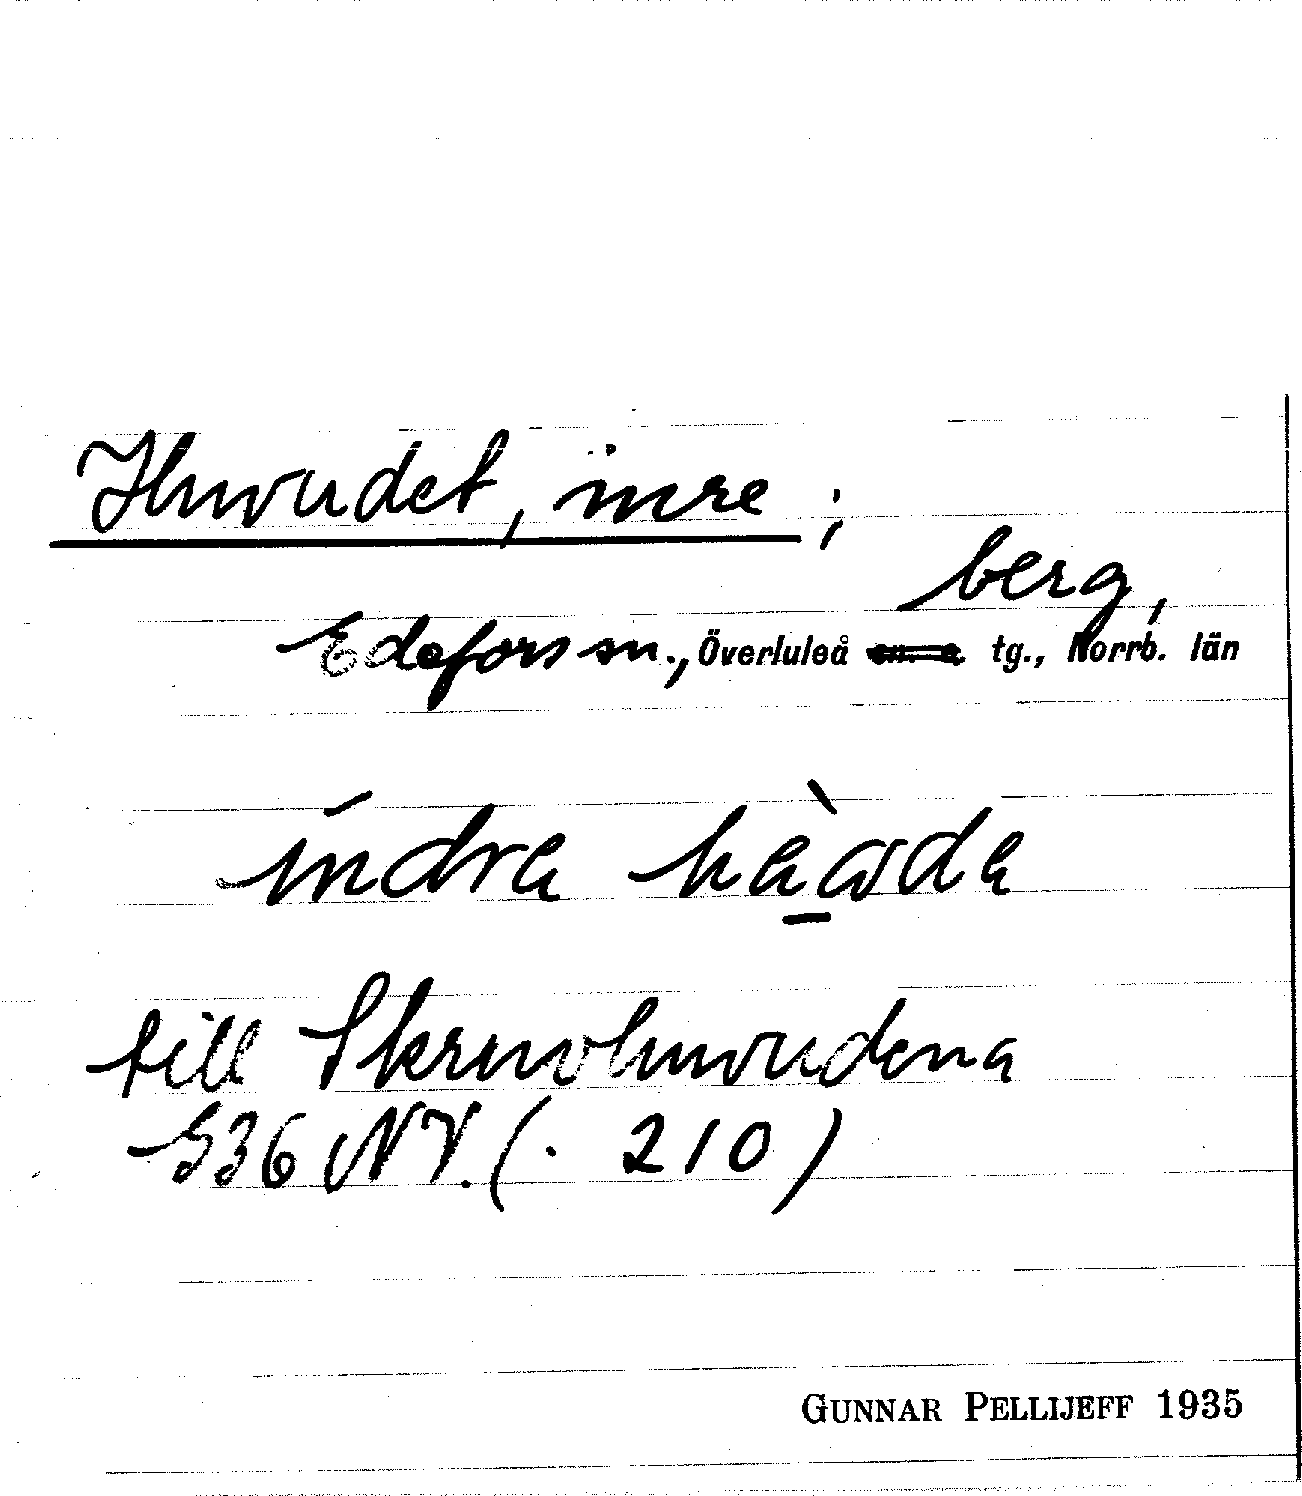 Huvudet, inre;
berg,
Edefors sn., Överluleå tg., Norrb. län
indra hàwda
till Skruvhuvudena
536 NV. (. 210)
GUNNAR PELLIJEFF 1935